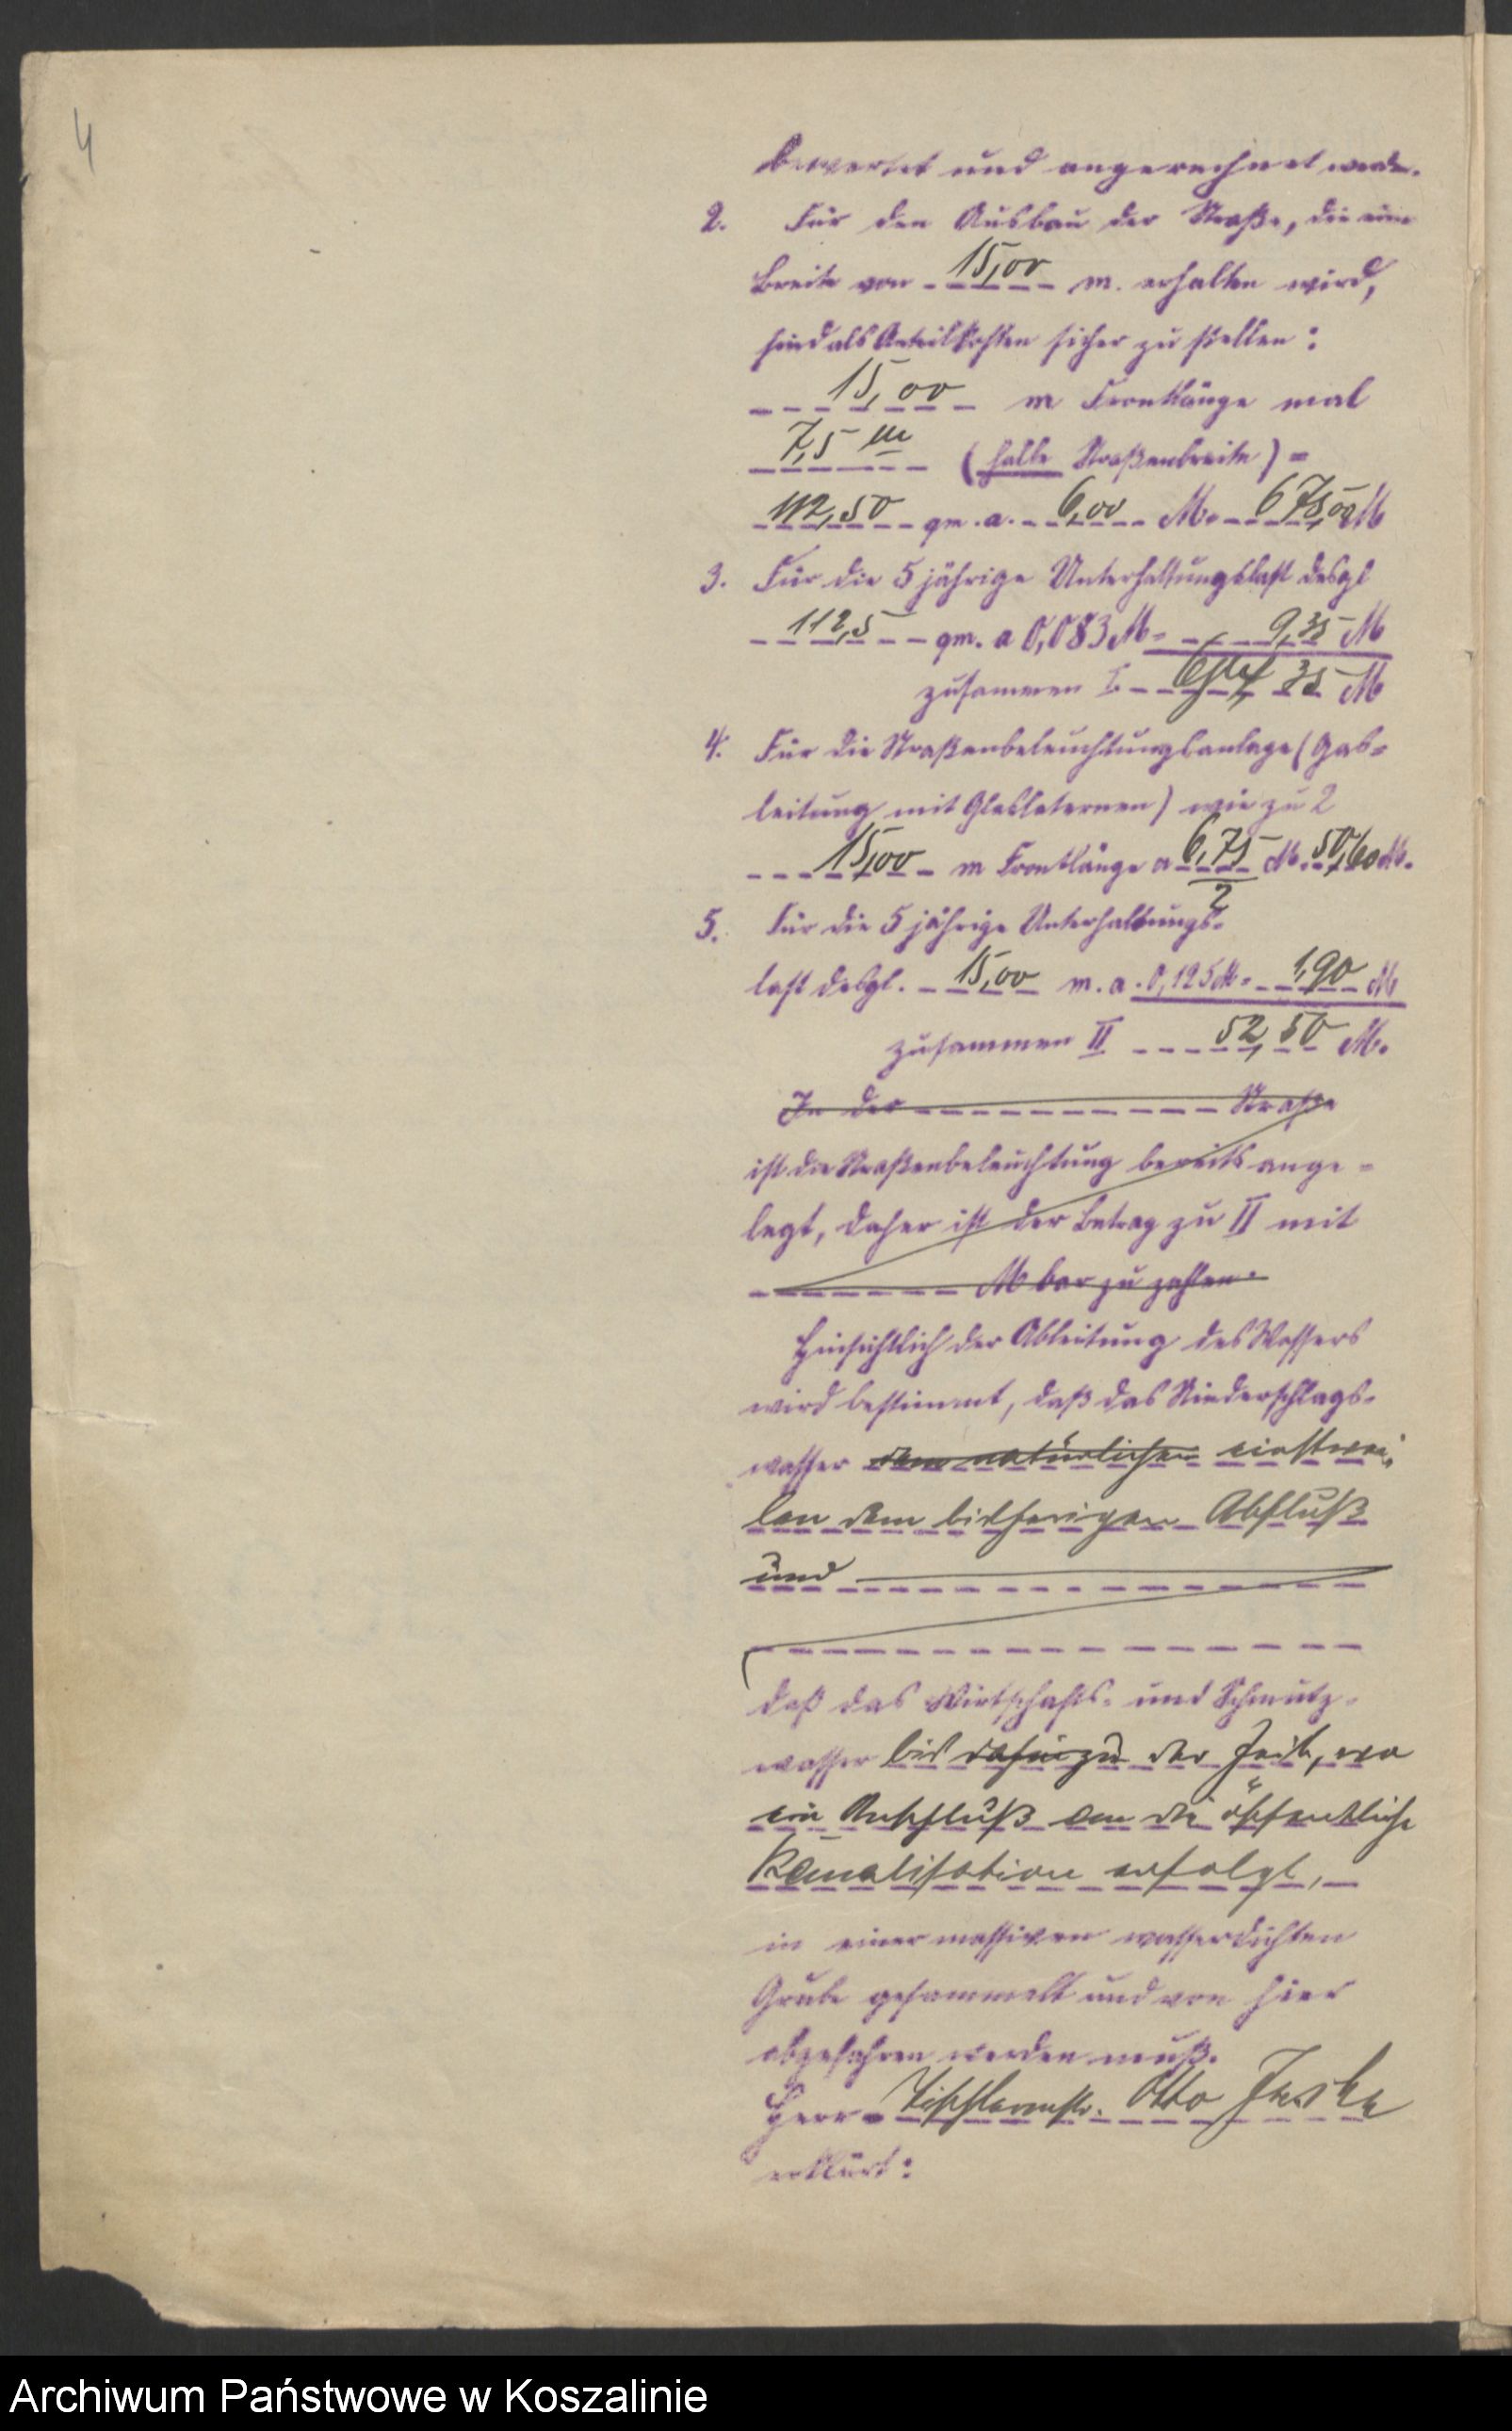 4
bewertet und angerechnet werden.
2. Für den Ausbau der Straße, die eine
Breite von 15,00 m. erhalten wird,
sind als Anteilkosten sicher zu stellen:
15,00 m Frontlänge mal
7,5 m (halbe Straßenbreite) =
112,50 qm. a. 6,00 M. 675,00 M
3. Für die 5 jährige Unterhaltungslast desgl
112,5 qm. a 0,083 M = 9,35 M
zusammen I 684,35 M
4. Für die Straßenbeleuchtungsanlage (Gas=
leitung mit Glaslaternen) wie zu 2
15,00 m Frontlänge a 6,75/2 M. 50,60 M.
5. Für die 5 jährige Unterhaltungs=
last desgl. 15,00 m. a. 0,125 M = 1,90 M
zusammen II 52,50 M.
In der Straße
ist die Straßenbeleuchtung bereits ange=
legt, daher ist der Betrag zu II mit
M bar zu zahlen.
Hinsichtlich der Ableitung des Wassers
wird bestimmt, daß das Niederschlags=
wasser dem natürlichen einstwei=
len dem bisherigen Abfluß
und
daß das Wirtschafts= und Schmutz=
wasser bis dahin zu der Zeit, wo
ein Anschluß an die öffentliche
Kanalisation erfolgt,
in einer massiven wasserdichten
Grube gesammelt und von hier
abgefahren werden muß.
Herr Tischlermstr. Otto
erklärt:
Archiwum Państwowe w Koszalinie